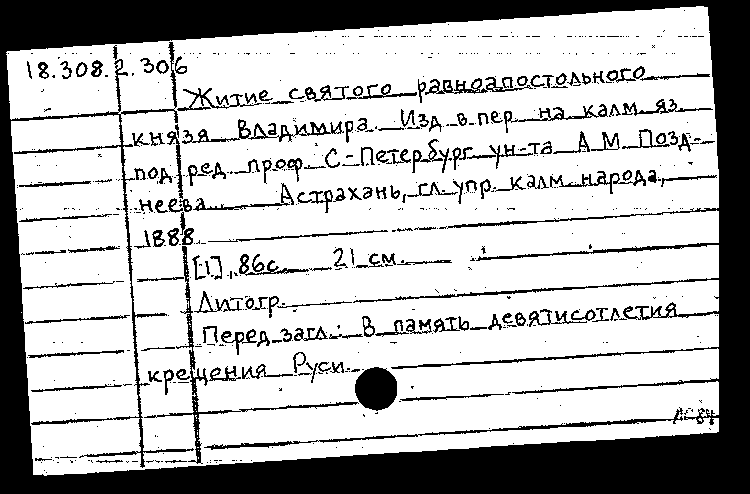 18.308.2.306
Житие святого равноапостольного
князя Владимира. Изд. в пер. на калм. яз.
под ред. проф. С-Петербург. ун-та А. М. Позд-
неева. Астрахань, гл. упр. калм. народа,
1888.
[1], 86с. 21 см.
Литогр.
Перед загл.: В память девятисотлетия
крещения Руси.
ЛС84